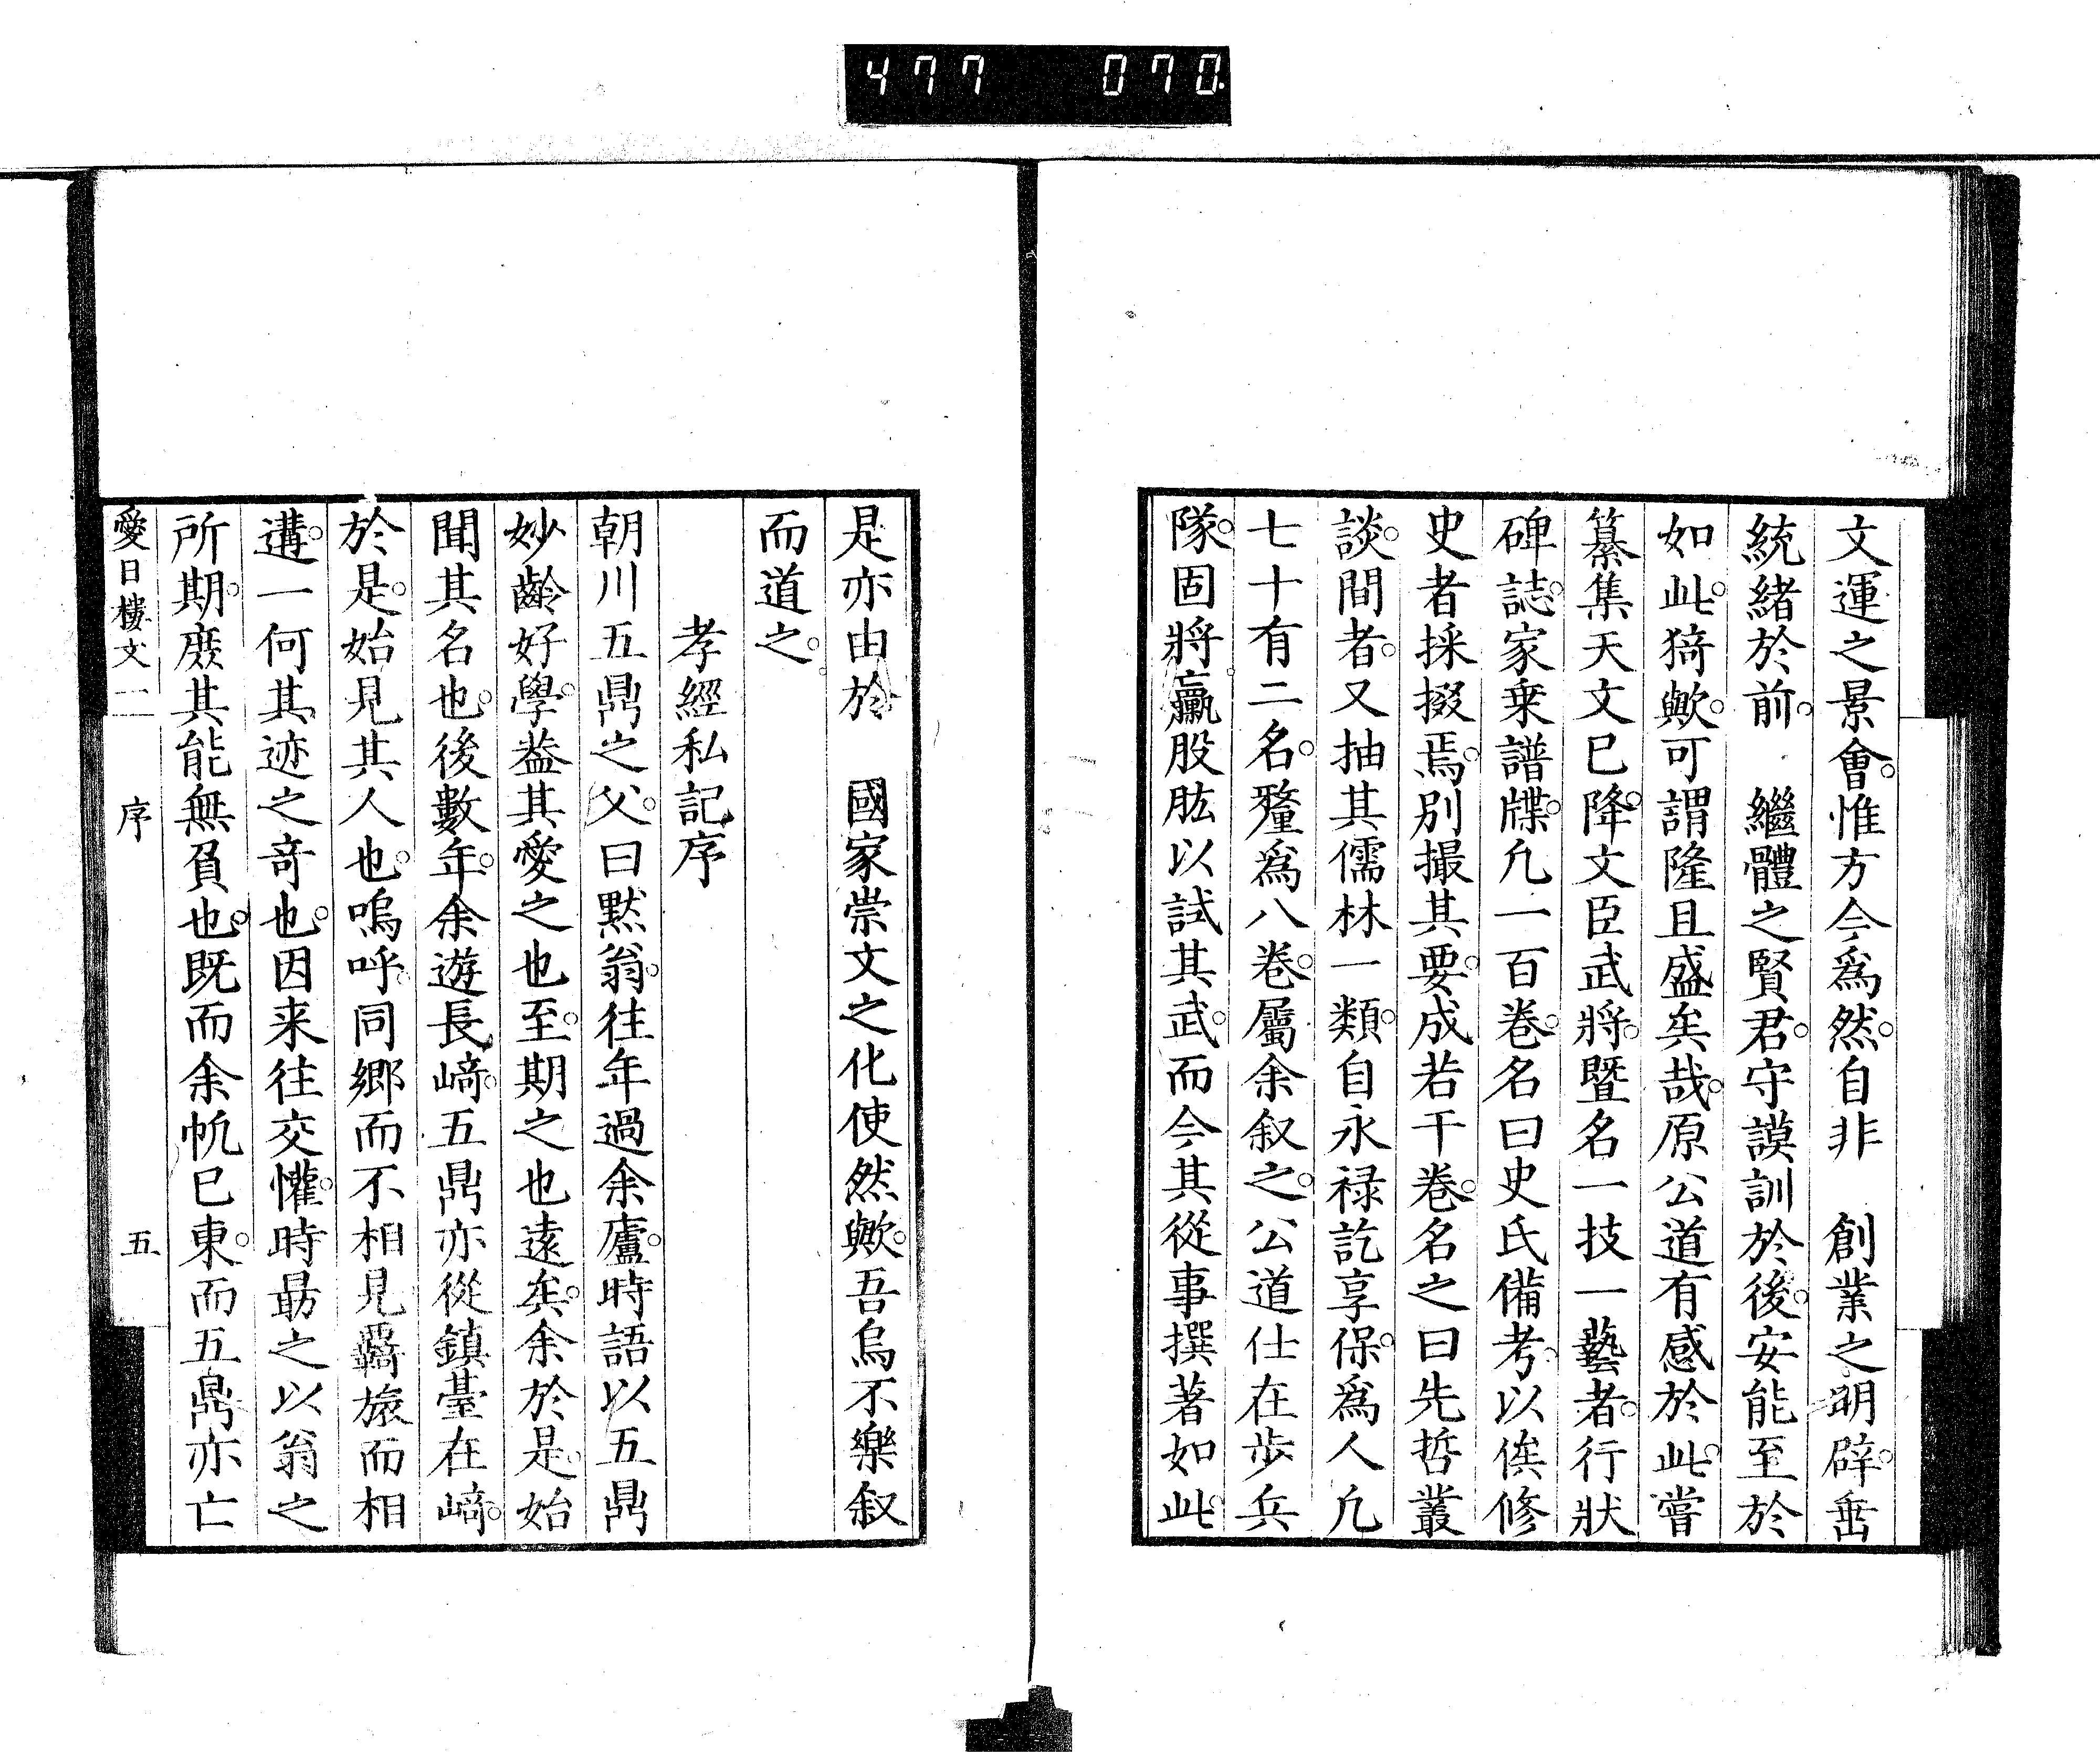 477 070.
文運之景會。惟方今爲然。自非　創業之明辟。垂
統緒於前。　繼體之賢君。守謨訓於後。安能至於
如此。猗歟。可謂隆且盛矣哉。原公道有感於此。嘗
纂集天文已降。文臣武將。暨名一技一藝者。行狀
碑誌。家乗譜牒。凢一百卷。名曰史氏備考。以俟修
史者採掇焉。別撮其要。成若干卷。名之曰先哲叢
談。間者。又抽其儒林一類。自永禄訖享保。爲人凢
七十有二名。釐爲八卷。屬余叙之。公道仕在步兵
隊。固將。贏股肱以試其武。而今其從事撰著如此。
是亦由於　國家崇文之化使然歟。吾烏不樂叙
而道之。
孝經私記序
朝川五鼎之父。曰黙翁。往年過余廬。時語以五鼎
妙齡好學。葢其愛之也至。期之也遠矣。余於是。始
聞其名也。後數年。余遊長﨑。五鼎亦從鎮臺在﨑。
於是。始見其人也。嗚呼。同鄉而不相見。羇旅而相
遘。一何其迹之竒也。因来往交懽。時勗之以翁之
所期。庻其能無負也。既而余帆已東。而五鼎亦亡
愛日樓文一　序　五